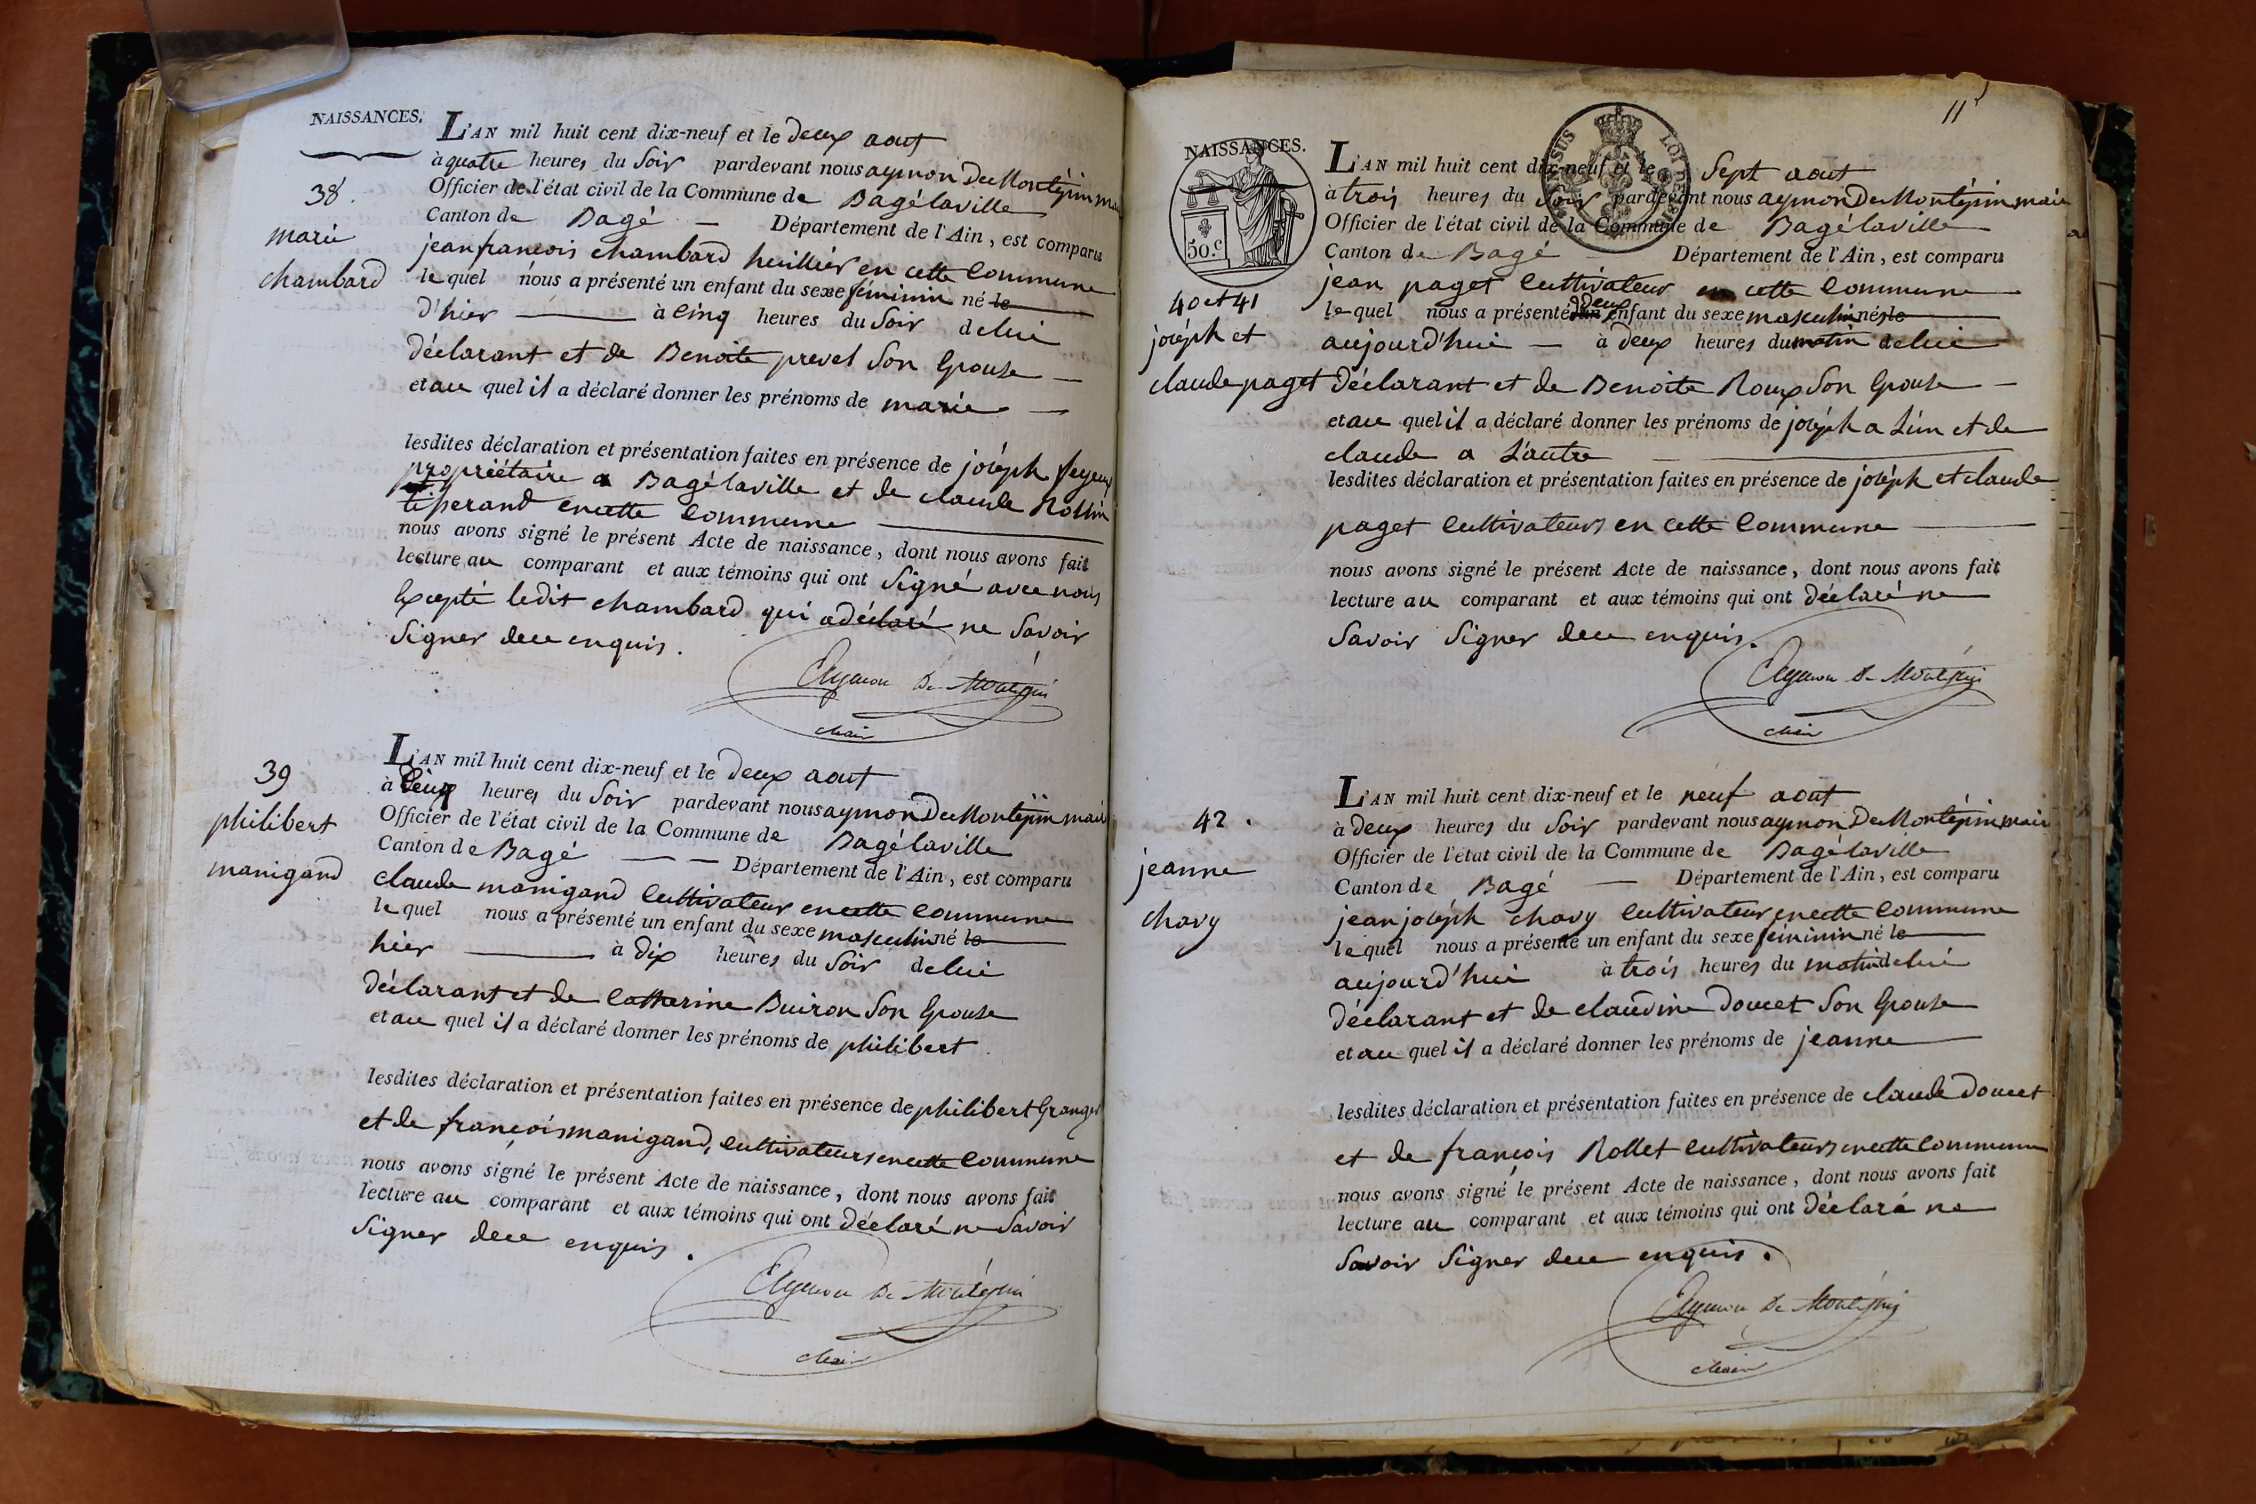 NAISSANCES.
38.
marie
chambard
L'AN mil huit cent dix-neuf et le deux aout
à quatre heures du Soir pardevant nous aymon De Montépin
Officier de l'état civil de la Commune de Bagélaville
Canton de Bagé — Département de l'Ain, est comparu
jean francois chambard huillier en cette Commune
le quel nous a présenté un enfant du sexe féminin né le
d'hier — à Cinq heures du Soir de lui
déclarant et de Benoite prevel Son Epouse —
et au quel il a déclaré donner les prénoms de marie —
lesdites déclaration et présentation faites en présence de joséph
propriétaire a Bagélaville et de claude Rollin
tisserand en cette Commune
nous avons signé le présent Acte de naissance, dont nous avons fait
lecture au comparant et aux témoins qui ont Signé avec nous
Excepté ledit chambard qui a déclaré ne Savoir
Signer de ce enquis.
Aymon De Montépin
Maire
39
philibert
manigand
L'AN mil huit cent dix-neuf et le deux aout
à heures du Soir pardevant nous aymon De Montépin maire
Officier de l'état civil de la Commune de Bagélaville
Canton de Bagé — — Département de l'Ain, est comparu
claude manigand Cultivateur en cette Commune
le quel nous a présenté un enfant du sexe masculin né le
hier — à dix heures du Soir de lui
déclarant et de Catherine Buiron Son Epouse
et au quel il a déclaré donner les prénoms de philibert
lesdites déclaration et présentation faites en présence de philibert Granger
et de françois manigand, Cultivateurs en cette Commune
nous avons signé le présent Acte de naissance, dont nous avons fait
lecture au comparant et aux témoins qui ont Déclaré ne Savoir
Signer de ce enquis.
Aymon De Montépin
Maire
11
NAISSANCES.
50.c
40 et 41
joséph et
claude paget
L'AN mil huit cent dix-neuf et le Sept aout
à trois heures du Soir pardevant nous aymon De Montépin maire
Officier de l'état civil de la Commune de Bagélaville
Canton de Bagé Département de l'Ain, est comparu
jean paget Cultivateur en cette Commune
le quel nous a présenté deux enfant du sexe masculin nés le
aujourd'hui — à deux heures du matin de lui
déclarant et de Benoite Roux Son Epouse —
et au quel il a déclaré donner les prénoms de joséph a L'un et de
claude a L'autre
lesdites déclaration et présentation faites en présence de joséph et claude
paget Cultivateurs en cette Commune
nous avons signé le présent Acte de naissance, dont nous avons fait
lecture au comparant et aux témoins qui ont déclaré ne
Savoir Signer de ce enquis.
Aymon De Montépin
Maire
42.
jeanne
chavy
L'AN mil huit cent dix-neuf et le neuf aout
à deux heures du Soir pardevant nous aymon De Montépin maire
Officier de l'état civil de la Commune de Bagélaville
Canton de Bagé — Département de l'Ain, est comparu
jean joséph chavy Cultivateur en cette Commune
le quel nous a présenté un enfant du sexe féminin né le
aujourd'hui à trois heures du matin de lui
déclarant et de claudine Doucet Son Epouse
et au quel il a déclaré donner les prénoms de jeanne
lesdites déclaration et présentation faites en présence de claude Doucet
et de françois Rollet Cultivateurs en cette Commune
nous avons signé le présent Acte de naissance, dont nous avons fait
lecture au comparant et aux témoins qui ont Déclaré ne
Savoir Signer de ce enquis.
Aymon De Montépin
Maire